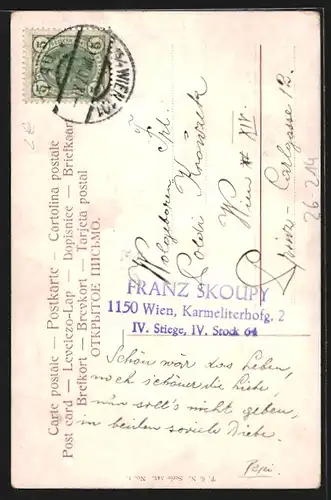 5 5
WIEN 101
Carte postale — Postkarte — Cartolina postale
Post card — Levelezo-Lap — Dopisnice — Briefkaart
Brefkort — Brevkort — Tarjeta postal
ОТКРЫТОЕ ПИСЬМО.
Wolgeboren Frl.
Poldi
Wien XIV.
Carlgasse 12.
26 214
FRANZ SKOUPY
1150 Wien, Karmeliterhofg. 2
IV. Stiege, IV. Stock 64
Schön wär das Leben,
noch schöner die Liebe,
nur soll's nicht geben,
in beiden soviele Diebe.
Pepi